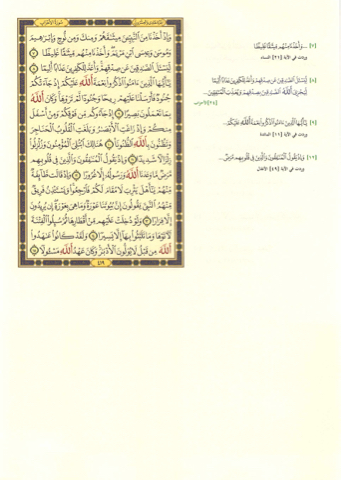 سورة الأحزاب
وَإِذْ أَخَذْنَا مِنَ النَّبِيِّينَ مِيثَاقَهُمْ وَمِنكَ وَمِن نُّوحٍ وَإِبْرَاهِيمَ
وَمُوسَى وَعِيسَى ابْنِ مَرْيَمَ وَأَخَذْنَا مِنْهُم مِّيثَاقًا غَلِيظًا ٧
لِّيَسْأَلَ الصَّادِقِينَ عَن صِدْقِهِمْ وَأَعَدَّ لِلْكَافِرِينَ عَذَابًا أَلِيمًا ٨
يَا أَيُّهَا الَّذِينَ آمَنُوا اذْكُرُوا نِعْمَةَ اللَّهِ عَلَيْكُمْ إِذْ جَاءَتْكُمْ
جُنُودٌ فَأَرْسَلْنَا عَلَيْهِمْ رِيحًا وَجُنُودًا لَّمْ تَرَوْهَا وَكَانَ اللَّهُ
بِمَا تَعْمَلُونَ بَصِيرًا ٩ إِذْ جَاءُوكُم مِّن فَوْقِكُمْ وَمِنْ أَسْفَلَ
مِنكُمْ وَإِذْ زَاغَتِ الْأَبْصَارُ وَبَلَغَتِ الْقُلُوبُ الْحَنَاجِرَ
وَتَظُنُّونَ بِاللَّهِ الظُّنُونَا ١٠ هُنَالِكَ ابْتُلِيَ الْمُؤْمِنُونَ وَزُلْزِلُوا
زِلْزَالًا شَدِيدًا ١١ وَإِذْ يَقُولُ الْمُنَافِقُونَ وَالَّذِينَ فِي قُلُوبِهِم
مَّرَضٌ مَّا وَعَدَنَا اللَّهُ وَرَسُولُهُ إِلَّا غُرُورًا ١٢ وَإِذْ قَالَت طَّائِفَةٌ
مِّنْهُمْ يَا أَهْلَ يَثْرِبَ لَا مُقَامَ لَكُمْ فَارْجِعُوا وَيَسْتَأْذِنُ فَرِيقٌ
مِّنْهُمُ النَّبِيَّ يَقُولُونَ إِنَّ بُيُوتَنَا عَوْرَةٌ وَمَا هِيَ بِعَوْرَةٍ إِن يُرِيدُونَ
إِلَّا فِرَارًا ١٣ وَلَوْ دُخِلَتْ عَلَيْهِم مِّنْ أَقْطَارِهَا ثُمَّ سُئِلُوا الْفِتْنَةَ
لَآتَوْهَا وَمَا تَلَبَّثُوا بِهَا إِلَّا يَسِيرًا ١٤ وَلَقَدْ كَانُوا عَاهَدُوا
اللَّهَ مِن قَبْلُ لَا يُوَلُّونَ الْأَدْبَارَ وَكَانَ عَهْدُ اللَّهِ مَسْئُولًا ١٥
٤١٩
[٧] ...وَأَخَذْنَا مِنْهُم مِّيثَاقًا غَلِيظًا
وردت في الآية [٢١] النساء
[٨] لِّيَسْأَلَ الصَّادِقِينَ عَن صِدْقِهِمْ وَأَعَدَّ لِلْكَافِرِينَ عَذَابًا أَلِيمًا
لِّيَجْزِيَ اللَّهُ الصَّادِقِينَ بِصِدْقِهِمْ وَيُعَذِّبَ الْمُنَافِقِينَ...
[٢٤] الأحزاب
[٩] يَا أَيُّهَا الَّذِينَ آمَنُوا اذْكُرُوا نِعْمَةَ اللَّهِ عَلَيْكُمْ...
وردت في الآية [١١] المائدة
[١٢] وَإِذْ يَقُولُ الْمُنَافِقُونَ وَالَّذِينَ فِي قُلُوبِهِم مَّرَضٌ...
وردت في الآية [٤٩] الأنفال